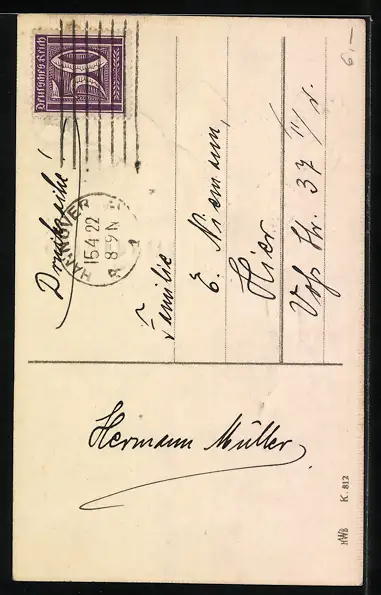 Deutsches Reich
50
Drucksache!
HANNOVER
15.4.22
8-9 N
Familie
E. Niemann,
Hier
Voß Str. 37
Hermann Müller
HWB
K. 812
6,-